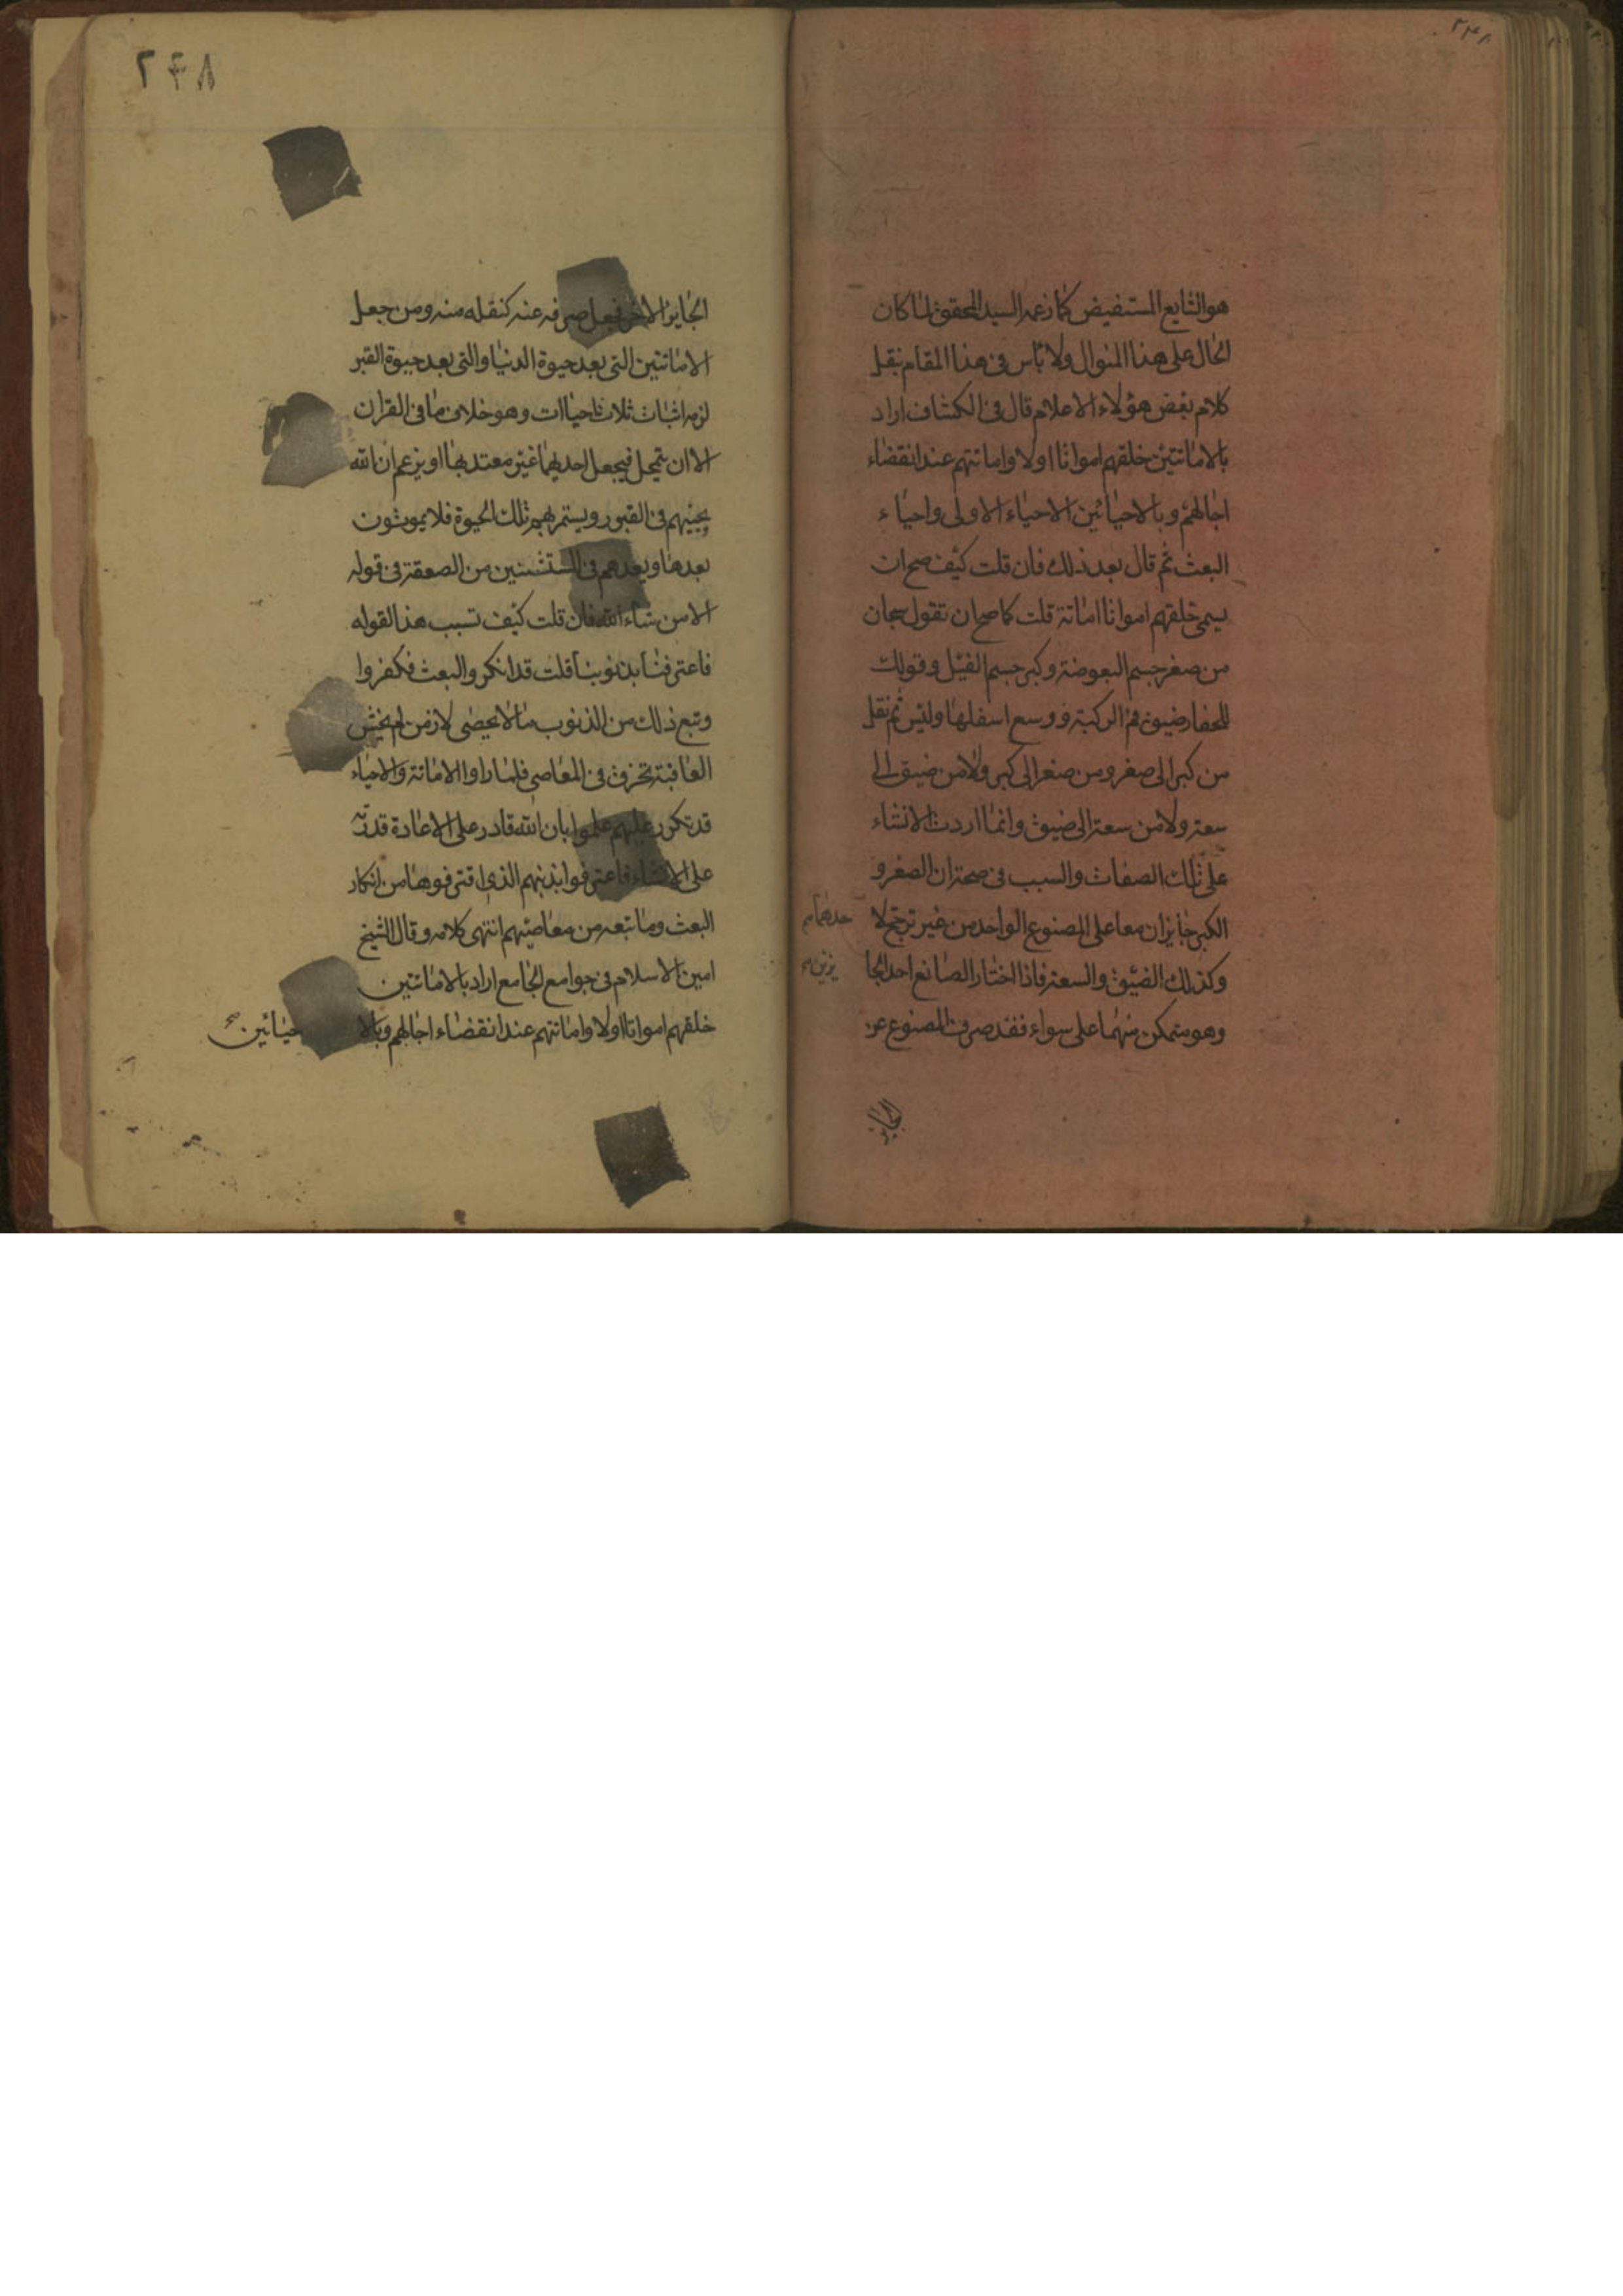 ۲۴۸
هو الشايع المستفيض كما زعمه السيد المحقق لما كان
الحال على هذا المنوال ولا باس فى هذا المقام بنقل
كلام بعض هؤلاء الاعلام قال فى الكشاف اراد
بالاماتتين خلقهم امواتا اولا واماتتهم عند انقضاء
اجالهم وبالاحيائين الاحياء الاولى واحياء
البعث ثم قال بعد ذلك فان قلت كيف صح ان
يسمى خلقهم امواتا اماتة قلت كما صح ان تقول سبحان
من صغر جسم البعوضة وكبر جسم الفيل وقولك
للحفار ضيق فم الركية ووسع اسفلها وليس ثم نقل
من كبر الى صغر ومن صغر الى كبر ولا من ضيق الى
سعة ولا من سعة الى ضيق وانما اردت الانشاء
على تلك الصفات والسبب فى صحته ان الصغر و
الكبر جايزان معا على المصنوع الواحد من غير ترجح لا
حدهما
وكذلك الضيق والسعة فاذا اختار الصانع احد الجا
يزين
وهو متمكن منهما على سواء فقد صرف المصنوع عن
الجايز
۲۴۸
الجايز الاخر فجعل صرفه عنه كنقله منه ومن جعل
الاماتتين التى بعد حيوة الدنيا والتى بعد حيوة القبر
لزمه اثبات ثلاث احياات وهو خلاف ما فى القران
الا ان يتمحل فيجعل احديهما غير معتد بها او يزعم ان الله
يحييهم فى القبور ويستمر بهم تلك الحيوة فلا يموتون
بعدها ويعدهم فى المستثنين من الصعقة فى قوله
الا من شاء الله فان قلت كيف تسبب هذا لقوله
فاعترفنا بذنوبنا قلت قد انكروا البعث فكفروا
وتبع ذلك من الذنوب ما لا يحصى لان من لم يخش
العاقبة تخرق فى المعاصى فلما راوا الاماتة والاحياء
قد تكرر عليهم علموا بان الله قادر على الاعادة قدرته
على الانشاء فاعترفوا بذنبهم الذى اقترفوها من انكار
البعث وما تبعه من معاصيهم انتهى كلامه وقال الشيخ
امين الاسلام فى جوامع الجامع اراد بالاماتتين
خلقهم امواتا اولا واماتتهم عند انقضاء اجالهم وبالا حيائين